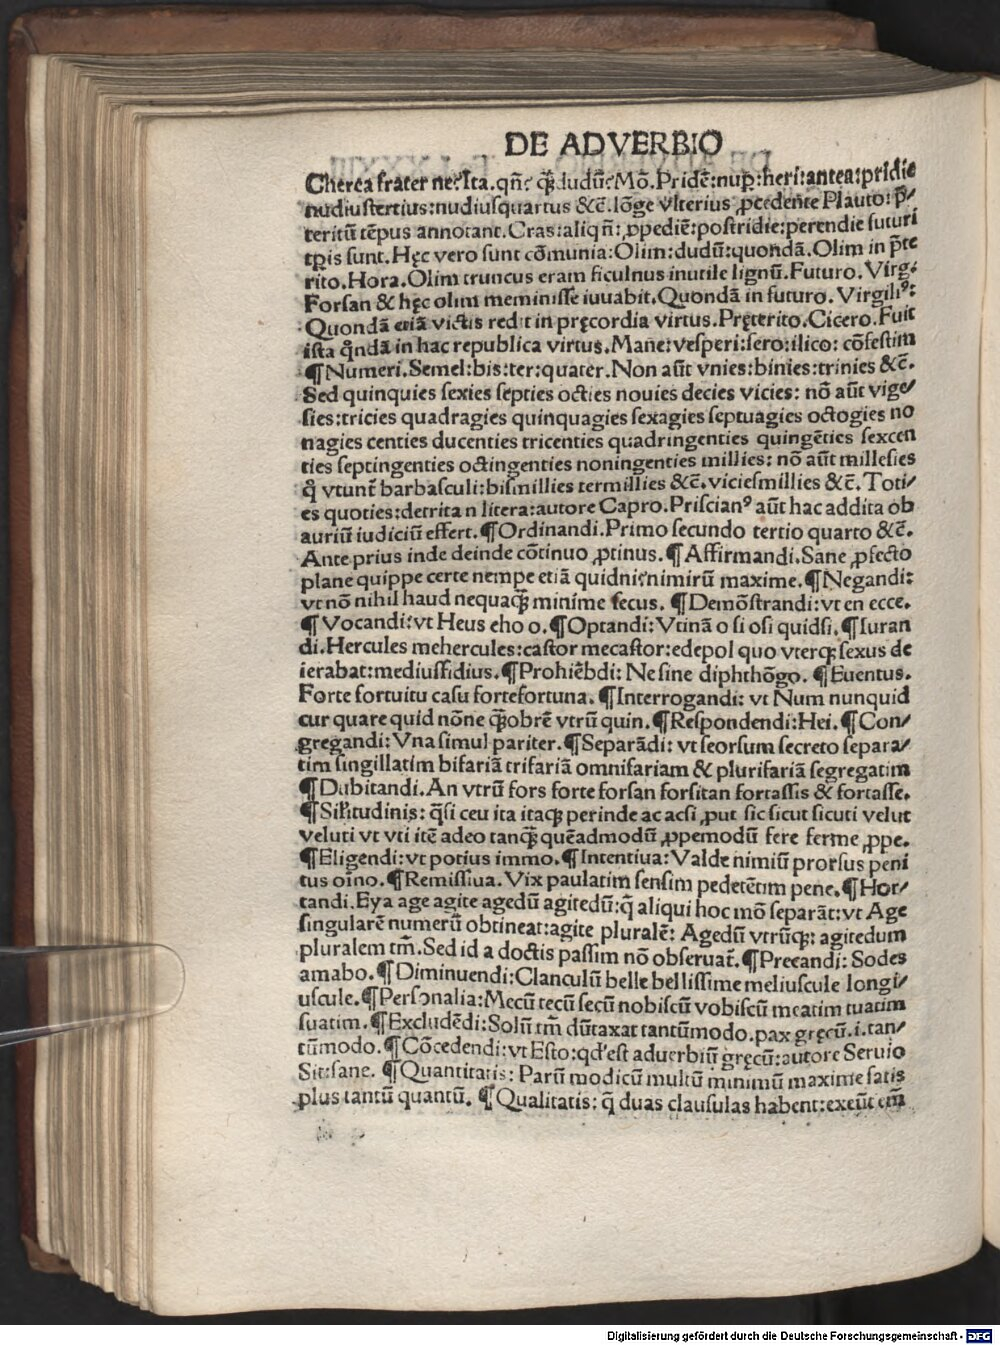 DE ADVERBIO
Cherea frater ne? Ita. qñ? ꝙ̃dudũ? Mõ. Pridẽ: nuꝑ: heri: antea: pridie
nudiustertius: nudiusquartus &c̃. lõge vlterius ꝓcedente Plauto: p̃/
teritũ tẽpus annotant. Cras: aliqñ: ꝓpediẽ: postridie: perendie futuri
tꝑis sunt. Hęc vero sunt cõmunia: Olim: dudũ: quondã. Olim in p̃te
rito. Hora. Olim truncus eram ficulnus inutile lignũ. Futuro. Virg.
Forsan & hęc olim meminisse iuuabit. Quondã in futuro. Virgiliꝰ:
Quondã etiã victis redit in pręcordia virtus. Pręterito. Cicero. Fuit
ista q̃ndã in hac republica virtus. Mane: vesperi: sero: ilico: cõfestim
¶Numeri. Semel: bis: ter: quater. Non aũt vnies: binies: trinies &c̃.
Sed quinquies sexies septies octies nouies decies vicies: nõ aũt vige/
sies: tricies quadragies quinquagies sexagies septuagies octogies no
nagies centies ducenties tricenties quadringenties quingẽties sexcen
ties septingenties octingenties noningenties millies: nõ aũt millesies
q̃ vtunt̃ barbasculi: bismillies termillies &c̃. viciesmillies &c̃. Toti/
es quoties: detrita n litera: autore Capro. Priscianꝰ aũt hac addita ob
auriũ iudiciũ effert. ¶Ordinandi. Primo secundo tertio quarto &c̃.
Ante prius inde deinde cõtinuo ꝓtinus. ¶Affirmandi. Sane ꝓfecto
plane quippe certe nempe etiã quidni? nimirũ maxime. ¶Negandi:
vt nõ nihil haud nequaꝙ̃ minime secus. ¶Demõstrandi: vt en ecce.
¶Vocandi: vt Heus eho o. ¶Optandi: Vtinã o si osi quidsi. ¶Iuran
di. Hercules mehercules: castor mecastor: edepol quo vterqꝫ sexus de
ierabat: mediusfidius. ¶Prohiẽbdi: Ne sine diphthõgo. ¶Euentus.
Forte fortuitu casu fortefortuna. ¶Interrogandi: vt Num nunquid
cur quare quid nõne ꝙ̃obrẽ vtrũ quin. ¶Respondendi: Hei. ¶Con/
gregandi: Vna simul pariter. ¶Separãdi: vt seorsum secreto separa/
tim singillatim bifariã trifariã omnifariam & plurifariã segregatim
¶Dubitandi. An vtrũ fors forte forsan forsitan fortassis & fortasse.
¶Similitudinis: q̃si ceu ita itaqꝫ perinde ac acsi ꝓut sic sicut sicuti velut
veluti vt vti itẽ adeo tanꝙ̃ quẽadmodũ ꝓpemodũ fere ferme ꝓpe.
¶Eligendi: vt potius immo. ¶Intentiua: Valde nimiũ prorsus peni
tus oĩno. ¶Remissiua. Vix paulatim sensim pedetẽtim pene. ¶Hor/
tandi. Eya age agite agedũ agitedũ: q̃ aliqui hoc mõ separãt: vt Age
singularẽ numerũ obtineat: agite pluralẽ: Agedũ vtrũqꝫ: agitedum
pluralem tm̃. Sed id a doctis passim nõ obseruat̃. ¶Precandi: Sodes
amabo. ¶Diminuendi: Clanculũ belle bellissime meliuscule longi/
uscule. ¶Personalia: Mecũ tecũ secũ nobiscũ vobiscũ meatim tuatim
suatim. ¶Excludẽdi: Solũ tm̃ dũtaxat tantũmodo. pax gręcũ. i. tan/
tũmodo. ¶Cõcedendi: vt Esto: qd' est aduerbiũ gręcũ: autore Seruio
Sit: sane. ¶Quantitatis: Parũ modicũ multũ minimũ maxime satis
plus tantũ quantũ. ¶Qualitatis: q̃ duas clausulas habent: exeũt em̃
Digitalisierung gefördert durch die Deutsche Forschungsgemeinschaft - DFG